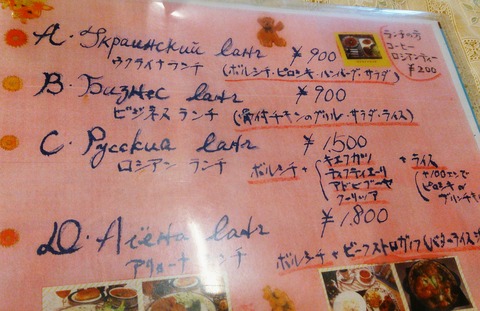 A. Украинский Ланч ¥900
ウクライナランチ (ボルシチ・ピロシキ・ハンバーグ・サラダ)
ランチの方
コーヒー
ロシアンティー
¥200
B. Бизнес Ланч ¥900
ビジネス ランチ (骨付チキンのグリル・サラダ・ライス)
C. Русскиа Ланч ¥1,500
ロシアン ランチ ボルシチ + キエフカツ + ライス
+100エンで
ピロシキか
D. Алёна Ланч ¥1,800
アリョーナ ランチ ボルシチ + ビーフストロガノフ (バターライス